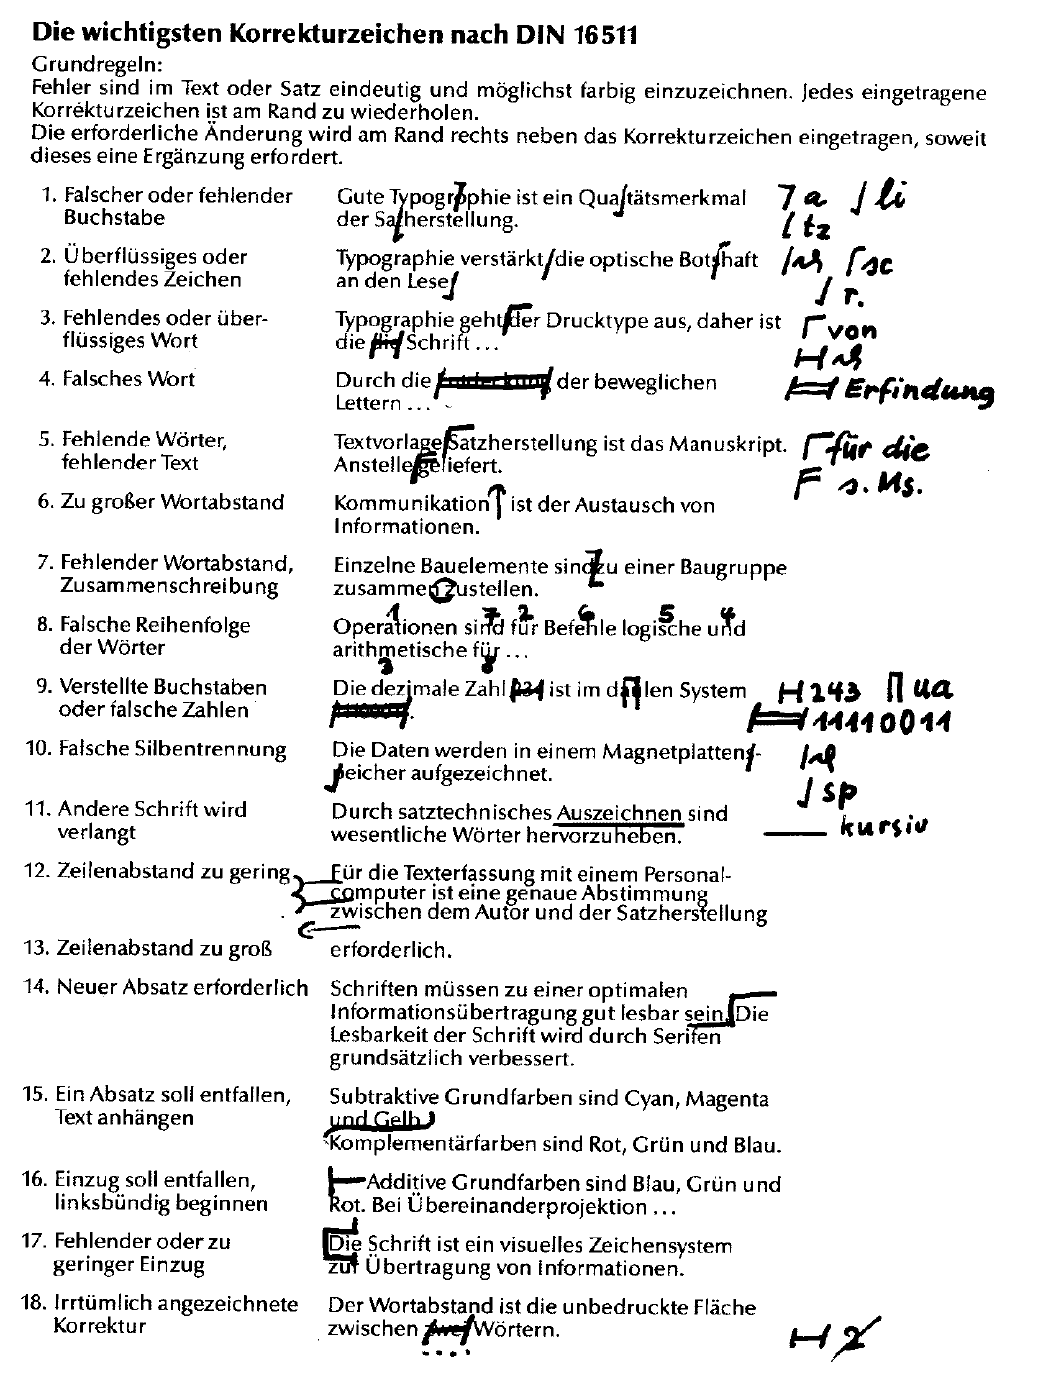 Die wichtigsten Korrekturzeichen nach DIN 16511
Grundregeln:
Fehler sind im Text oder Satz eindeutig und möglichst farbig einzuzeichnen. Jedes eingetragene
Korrekturzeichen ist am Rand zu wiederholen.
Die erforderliche Änderung wird am Rand rechts neben das Korrekturzeichen eingetragen, soweit
dieses eine Ergänzung erfordert.
1. Falscher oder fehlender Gute Typogrophie ist ein Quatätsmerkmal a li
Buchstabe der Saherstellung. tz
2. Überflüssiges oder Typographie verstärkt/die optische Botshaft sc
fehlendes Zeichen an den Lese r.
3. Fehlendes oder über- Typographie geht der Drucktype aus, daher ist von
flüssiges Wort die die Schrift ...
4. Falsches Wort Durch die Entdeckung der beweglichen Erfindung
Lettern ...
5. Fehlende Wörter, Textvorlage Satzherstellung ist das Manuskript. für die
fehlender Text Anstelle geliefert. s. Ms.
6. Zu großer Wortabstand Kommunikation ist der Austausch von
Informationen.
7. Fehlender Wortabstand, Einzelne Bauelemente sindzu einer Baugruppe
Zusammenschreibung zusammen zustellen.
1 7 2 6 5 4
8. Falsche Reihenfolge Operationen sind für Befehle logische und
der Wörter arithmetische für ...
3 8
9. Verstellte Buchstaben Die dezimale Zahl 234 ist im daulen System 243 ua
oder falsche Zahlen . 11110011
10. Falsche Silbentrennung Die Daten werden in einem Magnetplattens-
peicher aufgezeichnet. sp
11. Andere Schrift wird Durch satztechnisches Auszeichnen sind
verlangt wesentliche Wörter hervorzuheben. kursiv
12. Zeilenabstand zu gering Für die Texterfassung mit einem Personal-
computer ist eine genaue Abstimmung
zwischen dem Autor und der Satzherstellung
13. Zeilenabstand zu groß erforderlich.
14. Neuer Absatz erforderlich Schriften müssen zu einer optimalen
Informationsübertragung gut lesbar sein. Die
Lesbarkeit der Schrift wird durch Serifen
grundsätzlich verbessert.
15. Ein Absatz soll entfallen, Subtraktive Grundfarben sind Cyan, Magenta
Text anhängen und Gelb.
Komplementärfarben sind Rot, Grün und Blau.
16. Einzug soll entfallen, Additive Grundfarben sind Blau, Grün und
linksbündig beginnen Rot. Bei Übereinanderprojektion ...
17. Fehlender oder zu Die Schrift ist ein visuelles Zeichensystem
geringer Einzug zur Übertragung von Informationen.
18. Irrtümlich angezeichnete Der Wortabstand ist die unbedruckte Fläche
Korrektur zwischen zwei Wörtern. 2